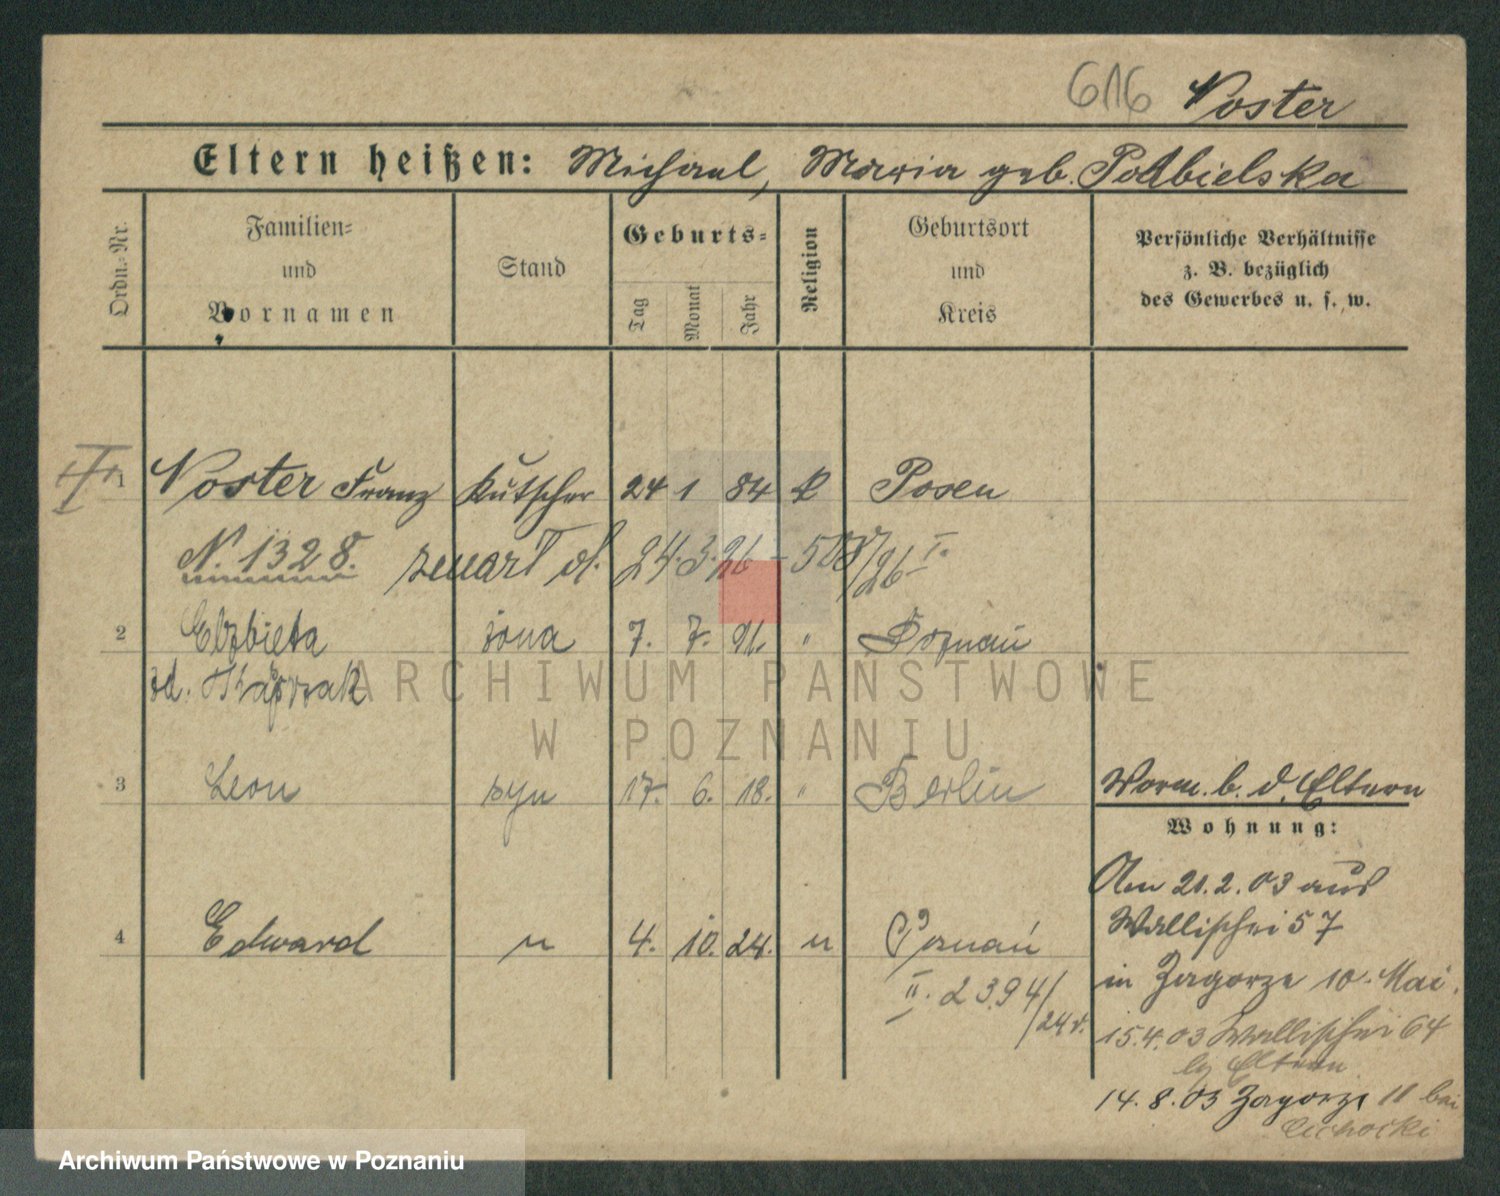 616 Noster
Eltern heißen: Michael, Maria geb. Podbielska
Ordn.-Nr.
Familien-
und
Vornamen
Stand
Geburts-
Tag
Monat
Jahr
Religion
Geburtsort
und
Kreis
Persönliche Verhältnisse
z. B. bezüglich
des Gewerbes u. s. w.
1 Noster Franz Kutscher 24 1 84 k Posen
N. 1328. zmarł d. 24.3.26 - 508/26 I.
2 Elżbieta żona 7. 7. 91. " Poznań
zd. Kasprzak
3 Leon syn 17. 6. 18. " Berlin
Worm. b. d. Eltern
Wohnung:
4 Edward " 4. 10. 24. " Poznań
II. 2394/24 r.
Am 21.2.03 aus
Wallischei 57
in Zagorze 10. Mai.
15.4.03 Wallischei 64
by Eltern
14.8.03 Zagorze 11 bei
Cichocki
ARCHIWUM PAŃSTWOWE
W POZNANIU
Archiwum Państwowe w Poznaniu